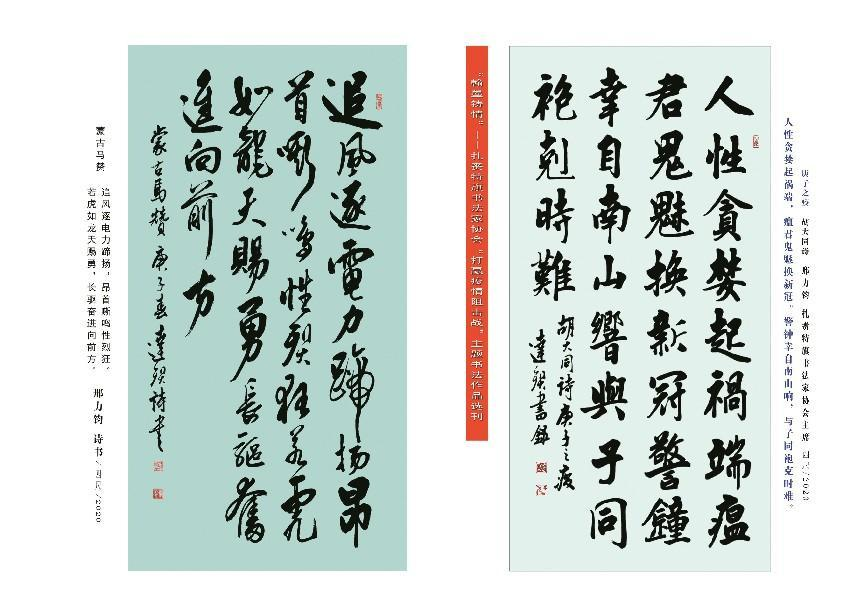 人性貪婪起禍端瘟
君鬼魅换新冠警鐘
幸自南山響與子同
袍剋時難
胡大同詩庚子之疫
達鋇書錄
庚子之疫 胡大同诗 邢力钧 扎赉特旗书法家协会主席 四尺/2020
人性贪婪起祸端，瘟君鬼魅换新冠。警钟幸自南山响，与子同袍克时难。
“翰墨铸情”——扎赉特旗书法家协会“打赢疫情阻击战”主题书法作品选刊
追風逐電力蹄扬昂
首嘶鸣性烈狂若虎
如龍天賜勇長驱奮
進向前方
蒙古馬贊 庚子春 達 詩書
蒙古马赞
追风逐电力蹄扬，昂首嘶鸣性烈狂。
若虎如龙天赐勇，长驱奋进向前方。
邢力钧 诗书/四尺/2020